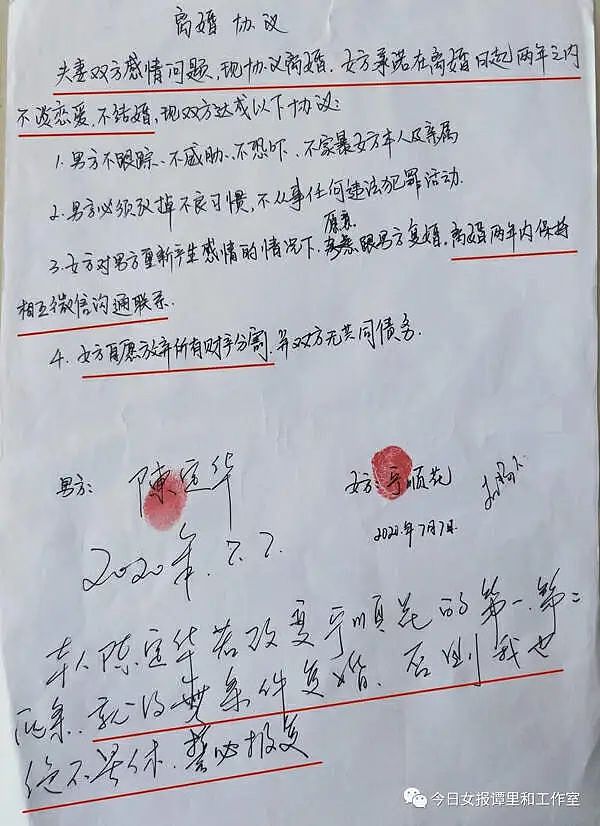 离婚协议
夫妻双方感情问题,现协议离婚.女方承诺在离婚日起两年之内
不谈恋爱.不结婚,现双方达成以下协议:
1.男方不跟踪、不威胁、不恐吓、不家暴女方本人及亲属
2.男方必须改掉不良习惯,不从事任何违法犯罪活动.
愿意
3.女方对男方重新产生感情的情况下,跟男方复婚,离婚两年内保持
相互微信沟通联系.
4.女方自愿放弃所有财产分割.并双方无共同债务.
男方: 陳定华
女方:于顺花
2020年7月7日
2020年.7.7.
本人陈定华若改变于順花的第一.第二
条.就得無条件复婚.否则我也
绝不罢休.誓必报复
今日女报谭里和工作室